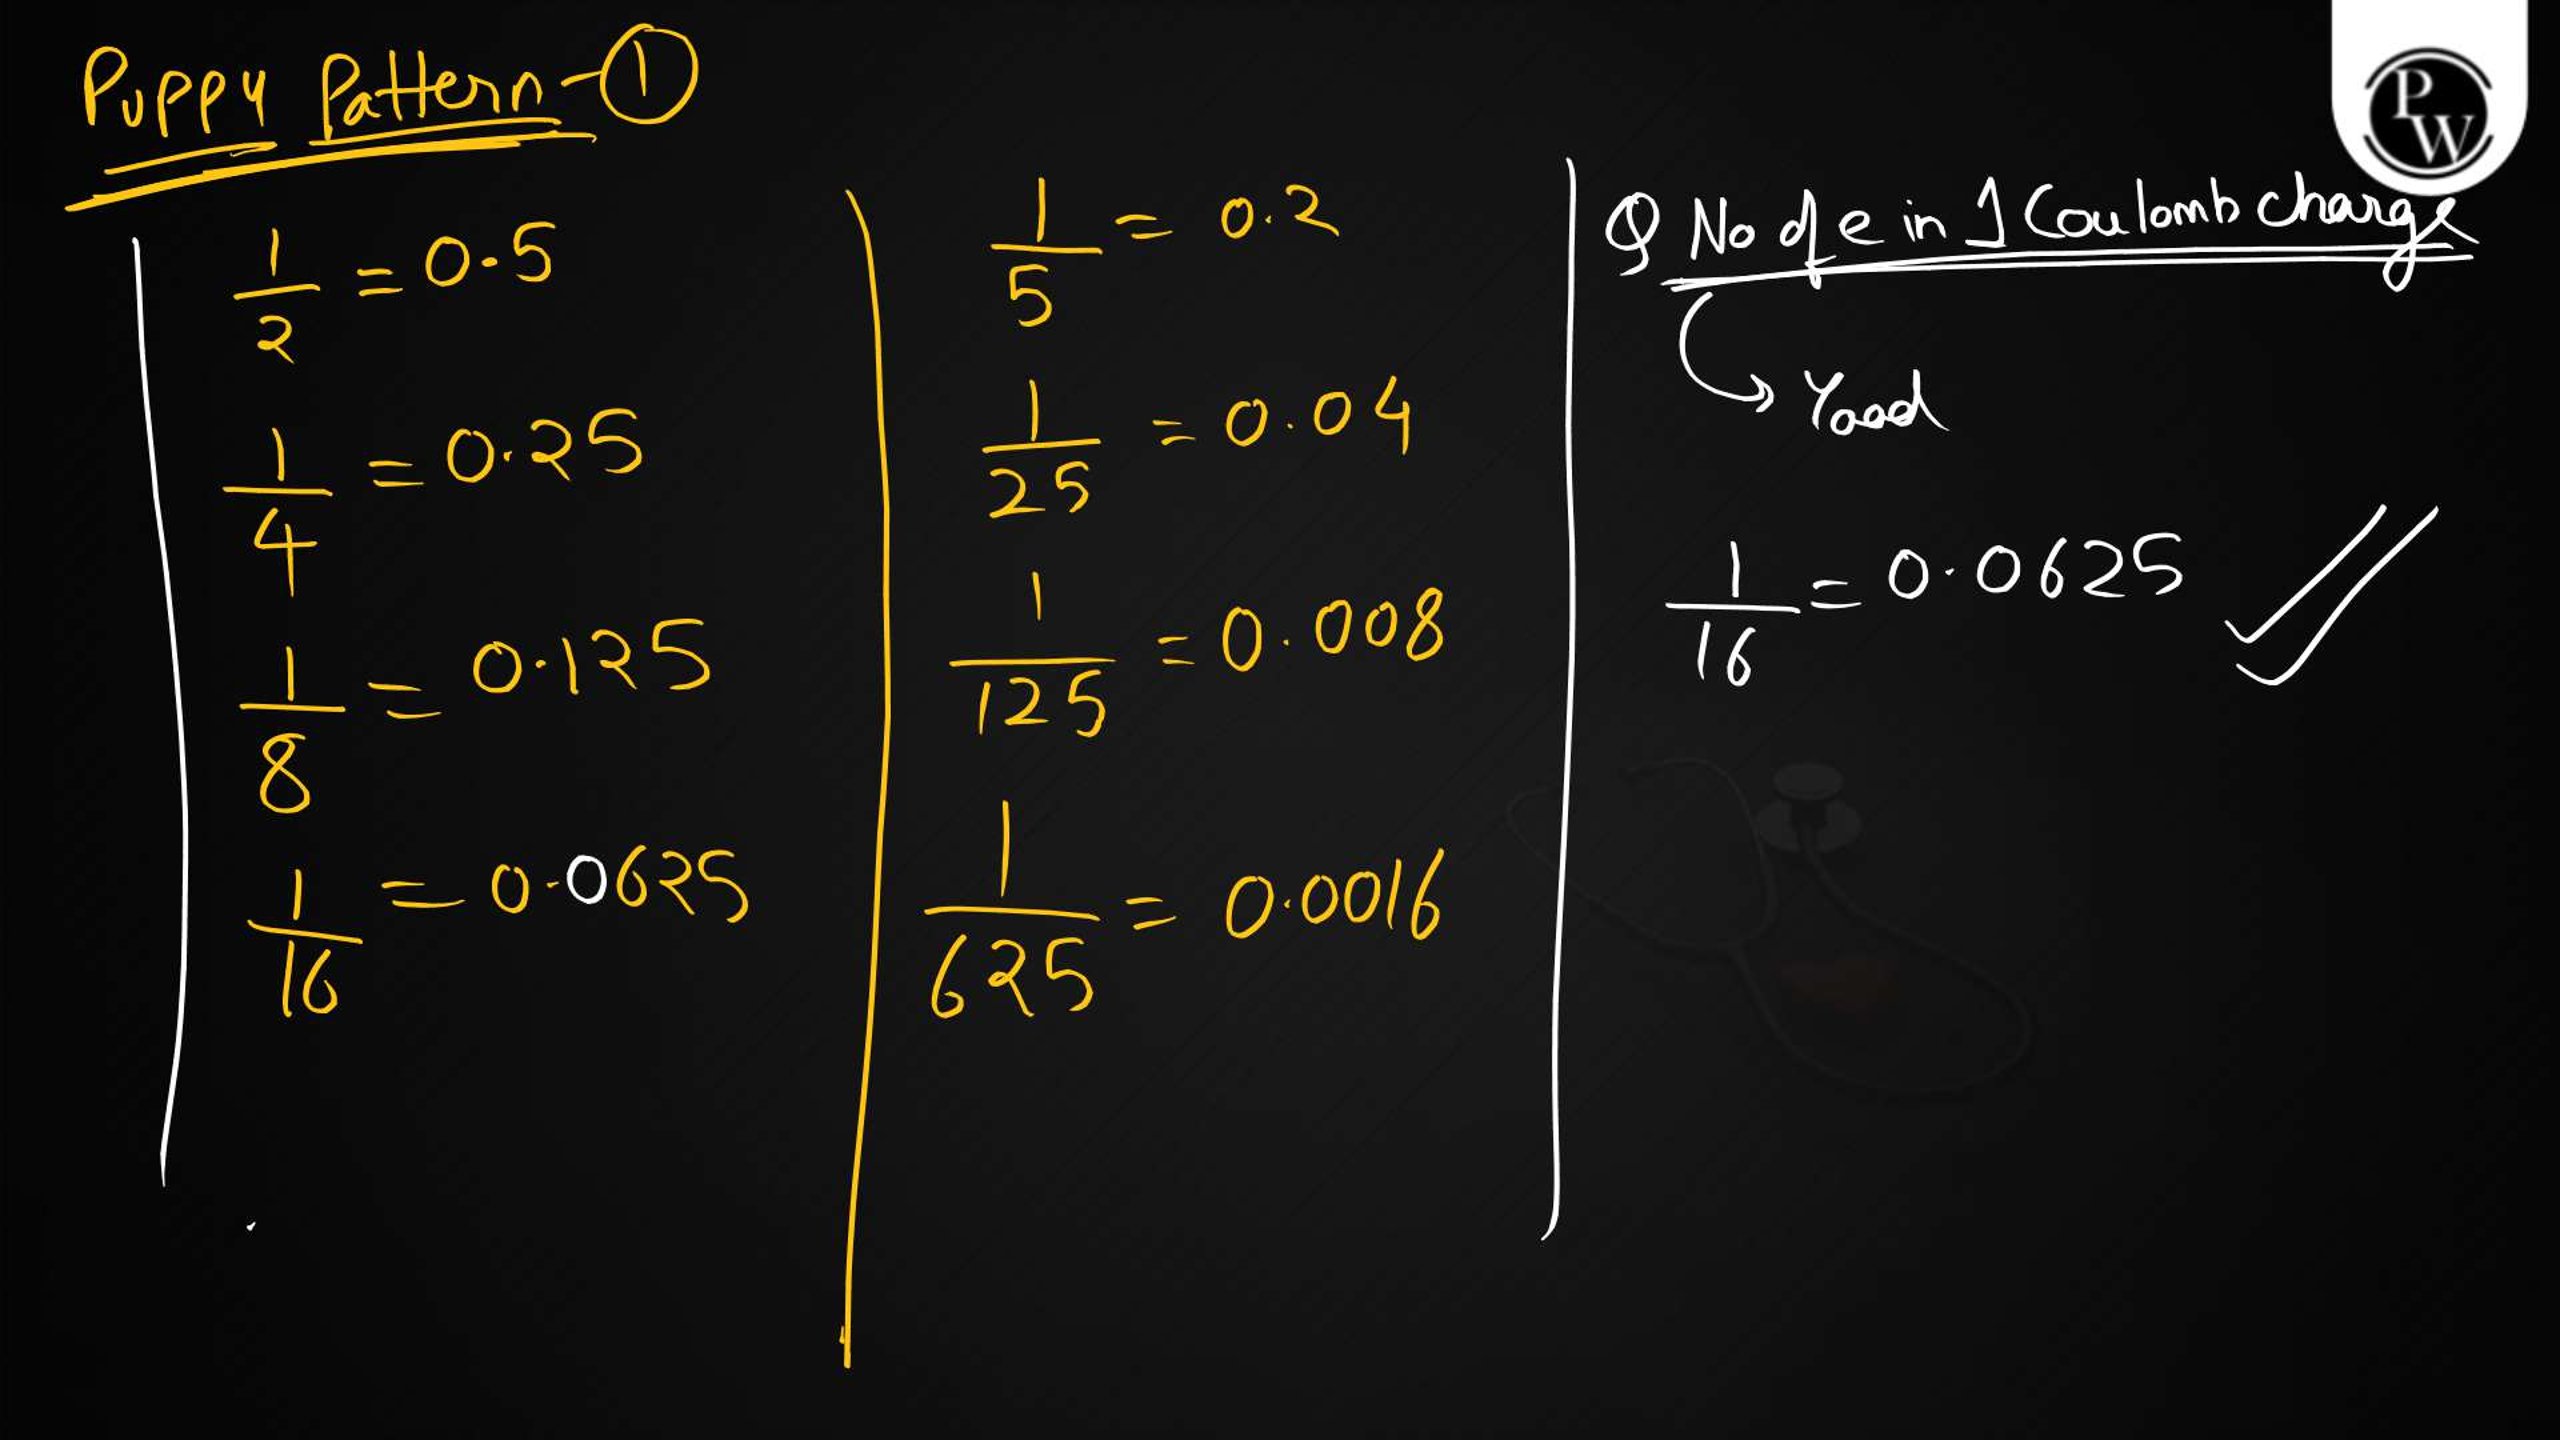 Puppy Pattern - 1
1/2 = 0.5
1/4 = 0.25
1/8 = 0.125
1/16 = 0.0625
1/5 = 0.2
1/25 = 0.04
1/125 = 0.008
1/625 = 0.0016
PW
Q No of e in 1 Coulomb charge
Yaad
1/16 = 0.0625